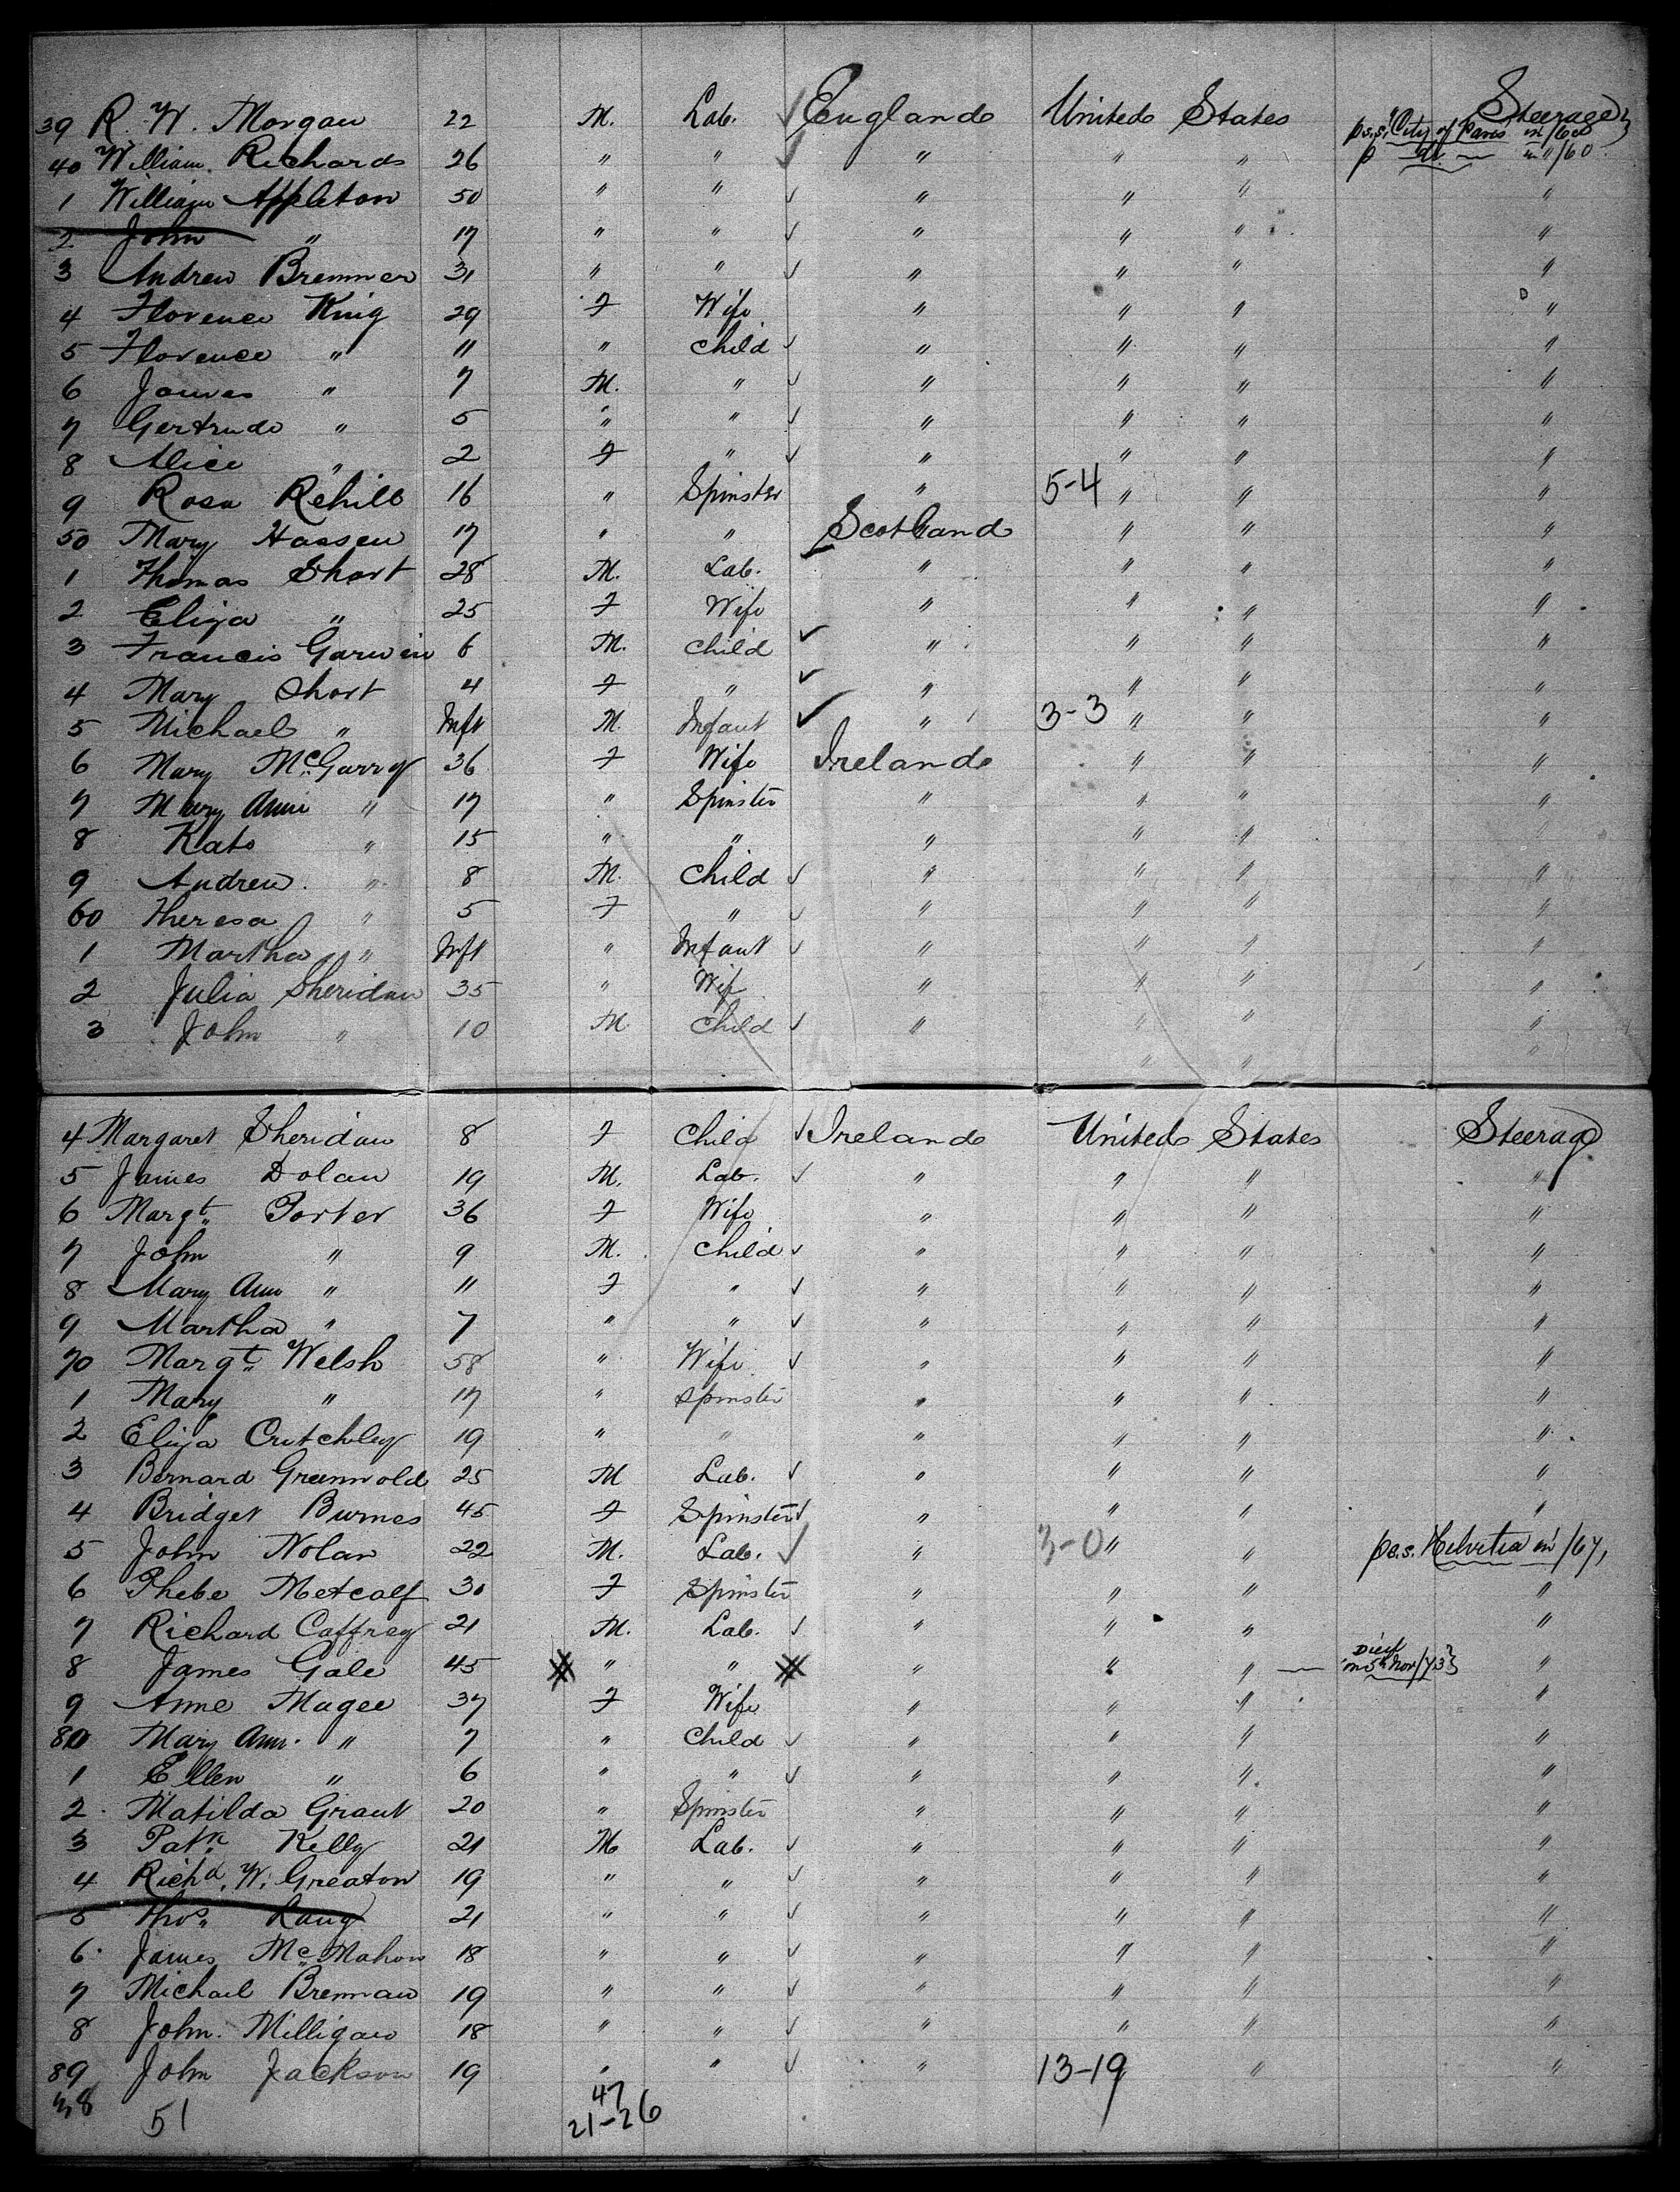 39 R. W. Morgan 22 M. Lab. England United States Steerage
p s.s. "City of Paris" in /60
40 William Richards 26 " " " " " p do in " /60
1 William Appleton 50 " " " " " "
2 John " 17 " " " " " "
3 Andrew Bremner 31 " " " " " "
4 Florence King 29 F Wife " " " "
5 Florence " 11 " Child " " " "
6 James " 7 M. " " " " "
7 Gertrude " 5 " " " " " "
8 Alice " 2 F " " " " "
9 Rosa Rehill 16 " Spinster " 5-4 " " "
50 Mary Hassen 17 " " Scotland " " "
1 Thomas Short 28 M. Lab. " " " "
2 Eliza " 25 F Wife " " " "
3 Francis Garwin 6 M. Child " " " "
4 Mary Short 4 F " " " " "
5 Michael " Inft M. Infant " 3-3 " " "
6 Mary McGarry 36 F Wife Ireland " " "
7 Mary Ann " 17 " Spinster " " " "
8 Kate " 15 " " " " " "
9 Andrew " 8 M. Child " " " "
60 Theresa " 5 F " " " " "
1 Martha " Inft " Infant " " " "
2 Julia Sheridan 35 " Wife " " " "
3 John " 10 M Child " " " "
" " "
4 Margaret Sheridan 8 F Child Ireland United States Steerage
5 James Dolan 19 M. Lab. " " " "
6 Margt. Porter 36 F Wife " " " "
7 John " 9 M. Child " " " "
8 Mary Ann " 11 F " " " " "
9 Martha " 7 " " " " " "
70 Margt. Welsh 58 " Wife " " " "
1 Mary " 17 " Spinster " " " "
2 Eliza Critchley 19 " " " " " "
3 Bernard Greenwold 25 M Lab. " " " "
4 Bridget Burnes 45 F Spinster " " " "
5 John Nolan 22 M. Lab. " 3-0 " " p s.s. Helvetia in /67,
6 Phebe Metcalf 30 F Spinster " " " "
7 Richard Caffrey 21 M. Lab. " " " "
8 James Gale 45 " " " " " Died on 5th Nov/73 "
9 Anne Magee 37 F Wife " " " "
80 Mary Ann " 7 " Child " " " "
1 Ellen " 6 " " " " " "
2 Matilda Grant 20 " Spinster " " " "
3 Patk. Kelly 21 M Lab. " " " "
4 Richd. W. Greaton 19 " " " " " "
5 Thos. Lang 21 " " " " " "
6 James McMahon 18 " " " " " "
7 Michael Brennan 19 " " " " " "
8 John Milligan 18 " " " " " "
89 John Jackson 19 " " " 13-19 " "
38 51 47
21-26